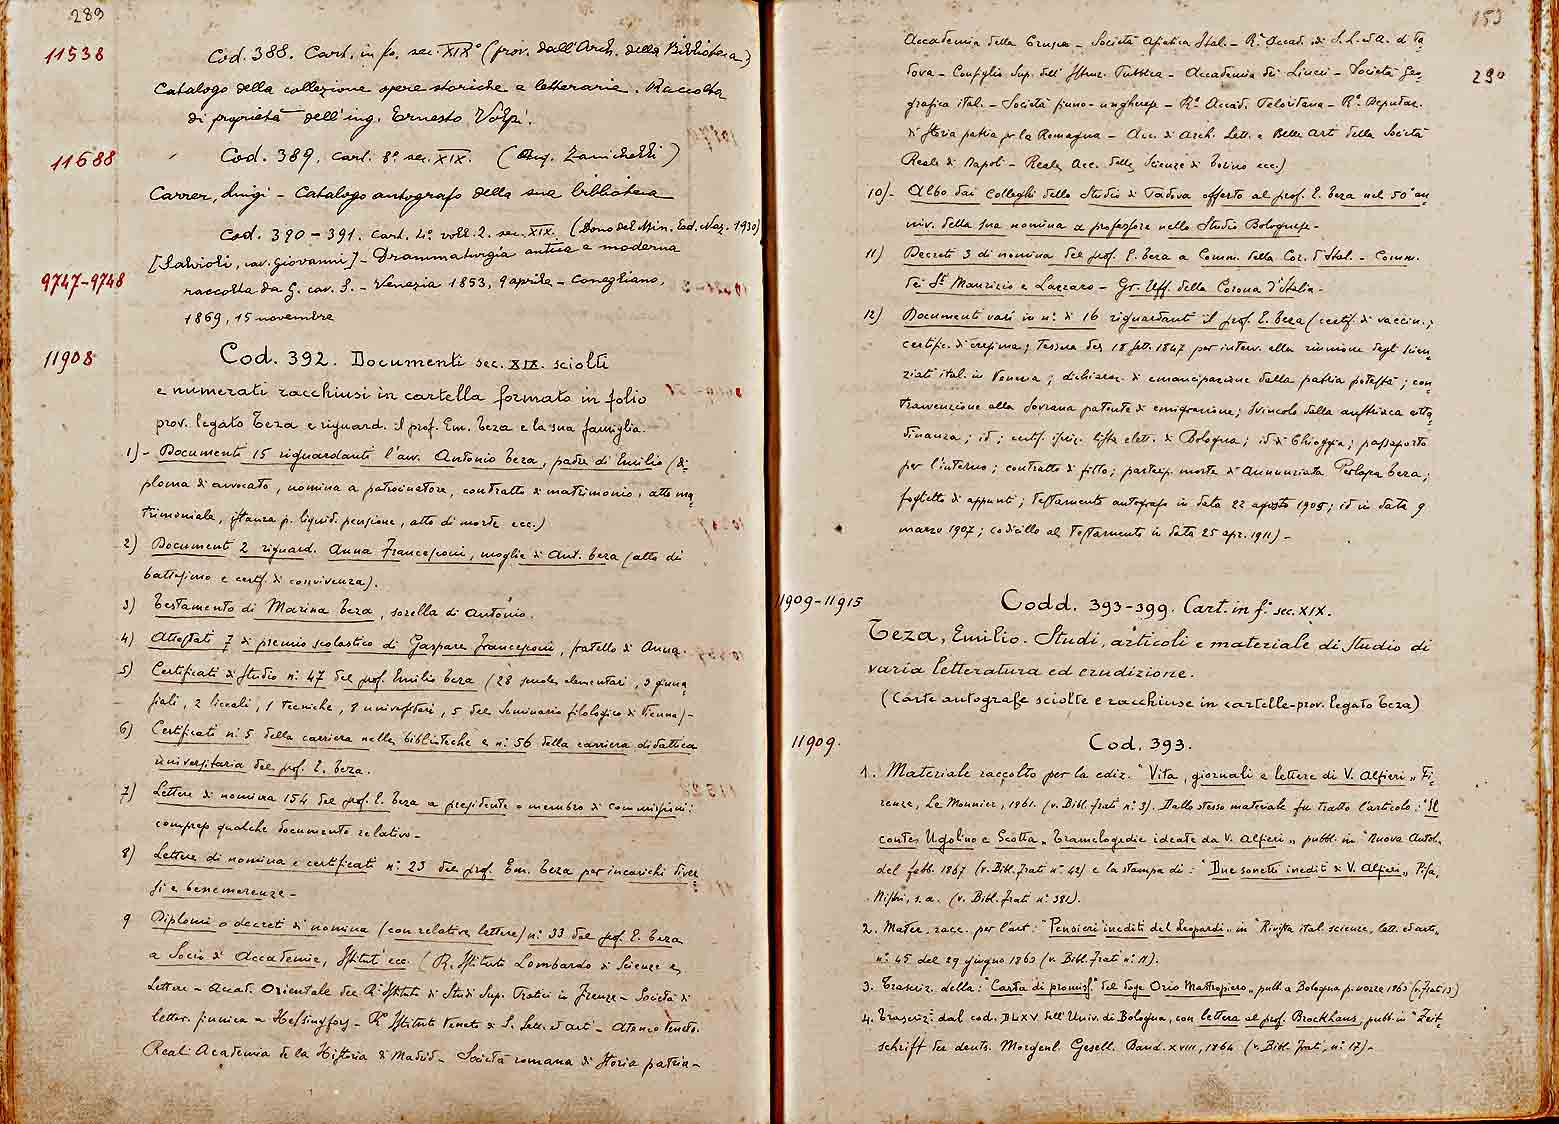 289
11538 Cod. 388. Cart. in fo. sec. XIX° (prov. dall'Arch. della Biblioteca)
Catalogo della collezione opere storiche e letterarie. Raccolta
di proprietà dell'ing. Ernesto Volpi.
11688 Cod. 389. cart. 8° sec. XIX. (Leg. Zanichelli)
Carrer, Luigi – Catalogo autografo della sua biblioteca
Cod. 390–391. Cart. 4° voll. 2. sec. XIX. (Dono del Min. Ed. Naz. 1930)
[Salvioli, cav. Giovanni] – Drammaturgia antica e moderna
9747–9748 raccolta da G. cav. S. – Venezia 1853, 9 aprile – Conegliano,
1869, 15 novembre
11908 Cod. 392. Documenti sec. XIX. sciolti
e numerati racchiusi in cartella formato in folio
prov. legato Teza e riguard. il prof. Em. Teza e la sua famiglia.
1) – Documenti 15 riguardanti l'avv. Antonio Teza, padre di Emilio (di-
ploma di avvocato, nomina a patrocinatore, contratto di matrimonio, atto ma-
trimoniale, istanza p. liquid. pensione, atto di morte ecc.)
2) Documenti 2 riguard. Anna Francesconi, moglie di Ant. Teza (atto di
battesimo e certif. di convivenza).
3) Testamento di Marina Teza, sorella di Antonio.
4) Attestati 7 di premio scolastico di Gaspare Francesconi, fratello di Anna.
5) Certificati di Studio n° 47 del prof. Emilio Teza (28 scuole elementari, 3 ginna-
siali, 2 liceali, 1 tecniche, 8 universitari, 5 del Seminario filologico di Vienna) –
6) Certificati n° 5 della carriera nelle biblioteche e n° 56 della carriera didattica
universitaria del prof. E. Teza.
7) Lettere di nomina 154 del prof. E. Teza a presidente o membro di commissioni:
compreso qualche documento relativo –
8) Lettere di nomina e certificati n° 23 del prof. Em. Teza per incarichi diver-
si e benemerenze –
9 Diplomi o decreti di nomina (con relative lettere) n° 33 del prof. E. Teza
a Socio di Accademie, Istituti ecc. (R. Istituto Lombardo di Scienze e
Lettere – Accad. Orientale del R° Istituto di Studi Sup. Pratici in Firenze – Società di
letter. finnica a Helsingfors – R° Istituto Veneto di S. Lett. ed arti – Ateneo Veneto.
Real Academia de la Historia di Madrid – Società romana di storia patria –
153
Accademia della Crusca – Società Asiatica Ital. – R. Accad. di S. L. ed A. di Pa-
dova – Consiglio Sup. dell'Istruz. Pubblica – Accademia dei Lincei – Società Geo-
290
grafica ital. – Società finno-ungherese – R. Accad. Peloritana – R. Deputaz.
di storia patria per la Romagna – Acc. di Arch. Lett. e Belle Arti della Società
Reale di Napoli – Reale Acc. delle Scienze di Torino ecc.)
10) – Albo dai Colleghi dello Studio di Padova offerto al prof. E. Teza nel 50° an-
niv. della sua nomina a professore nello Studio Bolognese –
11) Decreti 3 di nomina del prof. E. Teza a Comm. della Cor. d'Ital. – Comm.
dei Sti Maurizio e Lazzaro – Gr. Uff. della Corona d'Italia –
12) Documenti vari in n° di 16 riguardanti il prof. E. Teza (certif. di vaccin.;
certific. di cresima; Tessera del 18 sett. 1847 per interv. alla riunione degli scien-
ziati ital. in Venezia; dichiaraz. di emancipazione dalla patria potestà; con-
travvenzione alla Sovrana patente di emigrazione; svincolo dalla austriaca citta-
dinanza; id; certif. iscriz. lista elett. di Bologna; id di Chioggia; passaporto
per l'interno; contratto di fitto; partecip. morte di Annunziata Perlasca Teza;
foglietto di appunti; Testamento autografo in data 22 agosto 1905; id in data 9
marzo 1907; codicillo al Testamento in data 25 apr. 1911) –
11909–11915 Codd. 393–399. Cart. in f° sec. XIX.
Teza, Emilio. Studi, articoli e materiale di Studio di
varia letteratura ed erudizione.
(Carte autografe sciolte e racchiuse in cartelle – prov. legato Teza)
11909. Cod. 393.
1. Materiale raccolto per la ediz. "Vita, giornali e lettere di V. Alfieri" Fi-
renze, Le Monnier, 1861. (v. Bibl. Frati n° 3). Dallo stesso materiale fu tratto l'articolo: "Il
conte Ugolino e Scotta, Tramelogedie ideate da V. Alfieri" pubbl. in "Nuova Antol.
del febb. 1867 (v. Bibl. Frati n° 42) e la stampa di: "Due sonetti inediti di V. Alfieri" Pisa,
Nistri, s. a. (v. Bibl. Frati n° 381).
2. Mater. racc. per l'art: "Pensieri inediti del Leopardi" in "Rivista ital. scienze, lett. ed arti"
n° 45 del 29 giugno 1863 (v. Bibl. Frati n° 11).
3. Trascriz. della: "Carta di promiss." del doge Orio Mastropiero" pubb. a Bologna p. nozze 1863 (v. Frat 13)
4. Trascriz. dal cod. DLXV dell'Univ. di Bologna, con lettera al prof. Brockhaus, pubb. in "Zeit-
schrift der deuts. Morgenl. Gesell. Band. XVIII, 1864 (v. Bibl. Frati, n° 17) –